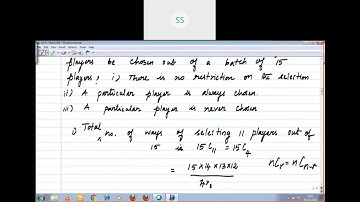 SS
players be chosen out of a batch of 15
players? i) There is no restriction on the selection
ii) A particular player is always chosen.
iii) A particular player is never chosen
i) Total no. of ways of selecting 11 players out of
15 is 15C₁₁ = 15C₄
nCr = nCn-r
= 15×14×13×12